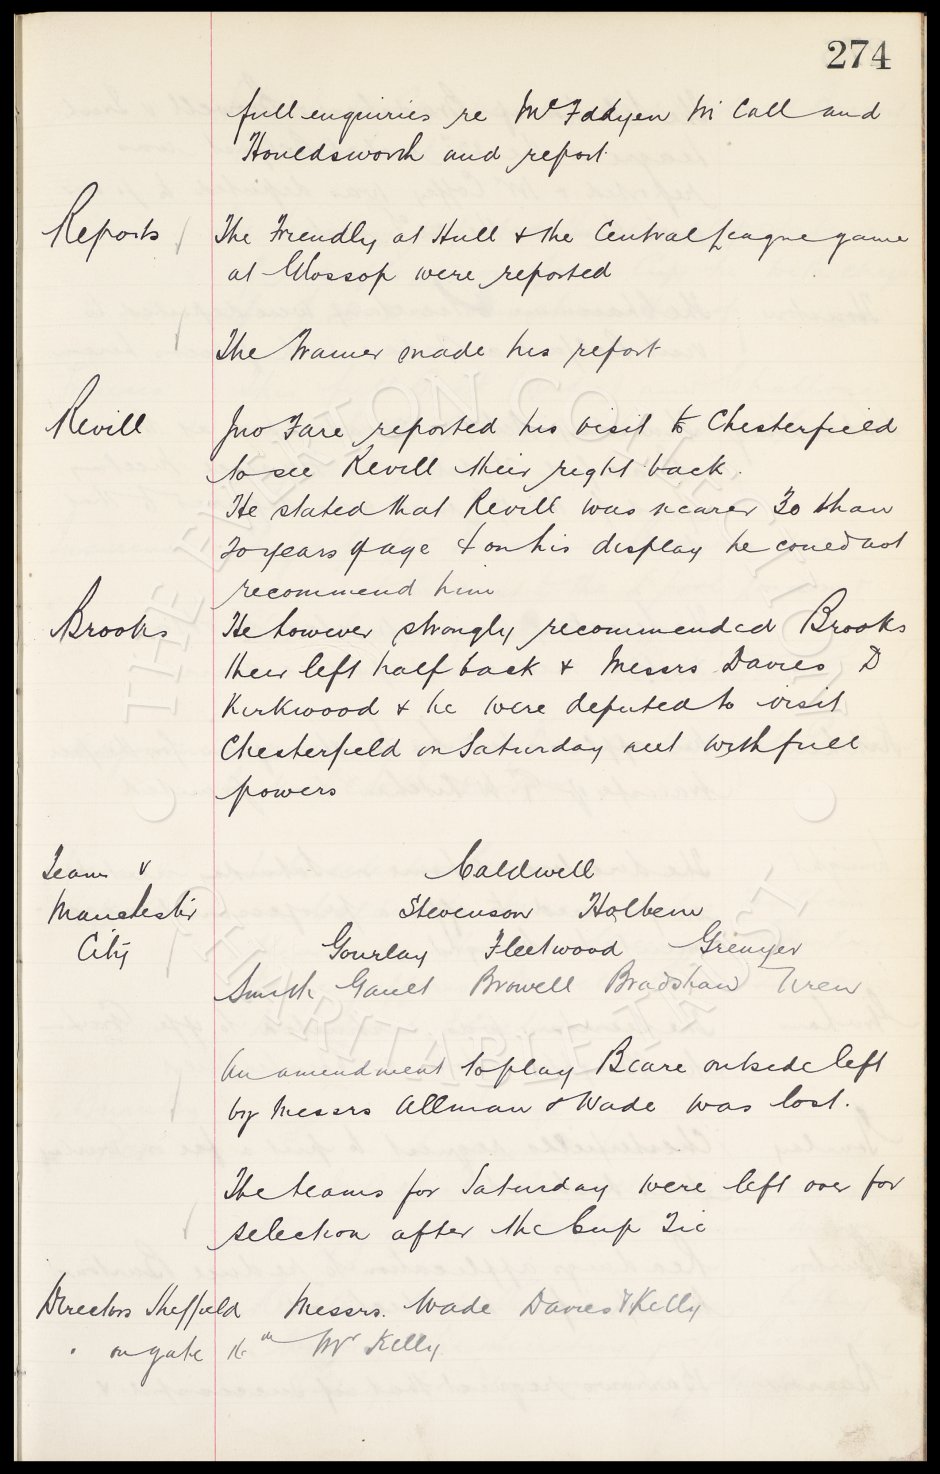 274
full enquiries re McFadyen McCall and
Houldsworth and report
Reports The Friendly at Hull & the Central League game
at Glossop were reported
The Trainer made his report
Revill Jno Fare reported his visit to Chesterfield
to see Revill their right back.
He stated that Revill was nearer 30 than
20 years of age & on his display he could not
recommend him
Brooks He however strongly recommended Brooks
their left half back & Messrs Davies D
Kirkwood & he were deputed to visit
Chesterfield on Saturday next with full
powers
Team v Caldwell
Manchester Stevenson Holbem
City Gourlay Fleetwood Grenyer
Smith Gault Browell Bradshaw Uren
An amendment to play Beare outside left
by Messrs Allman & Wade was lost.
The teams for Saturday were left over for
selection after the Cup Tie
Directors Sheffield Messrs. Wade Davies & Kelly
" on gate Mr Kelly